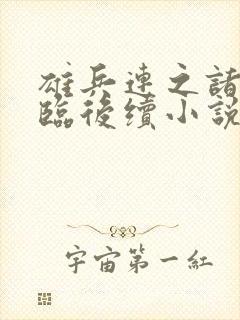 雄兵連之諸
臨後續小說
宇宙第一紅